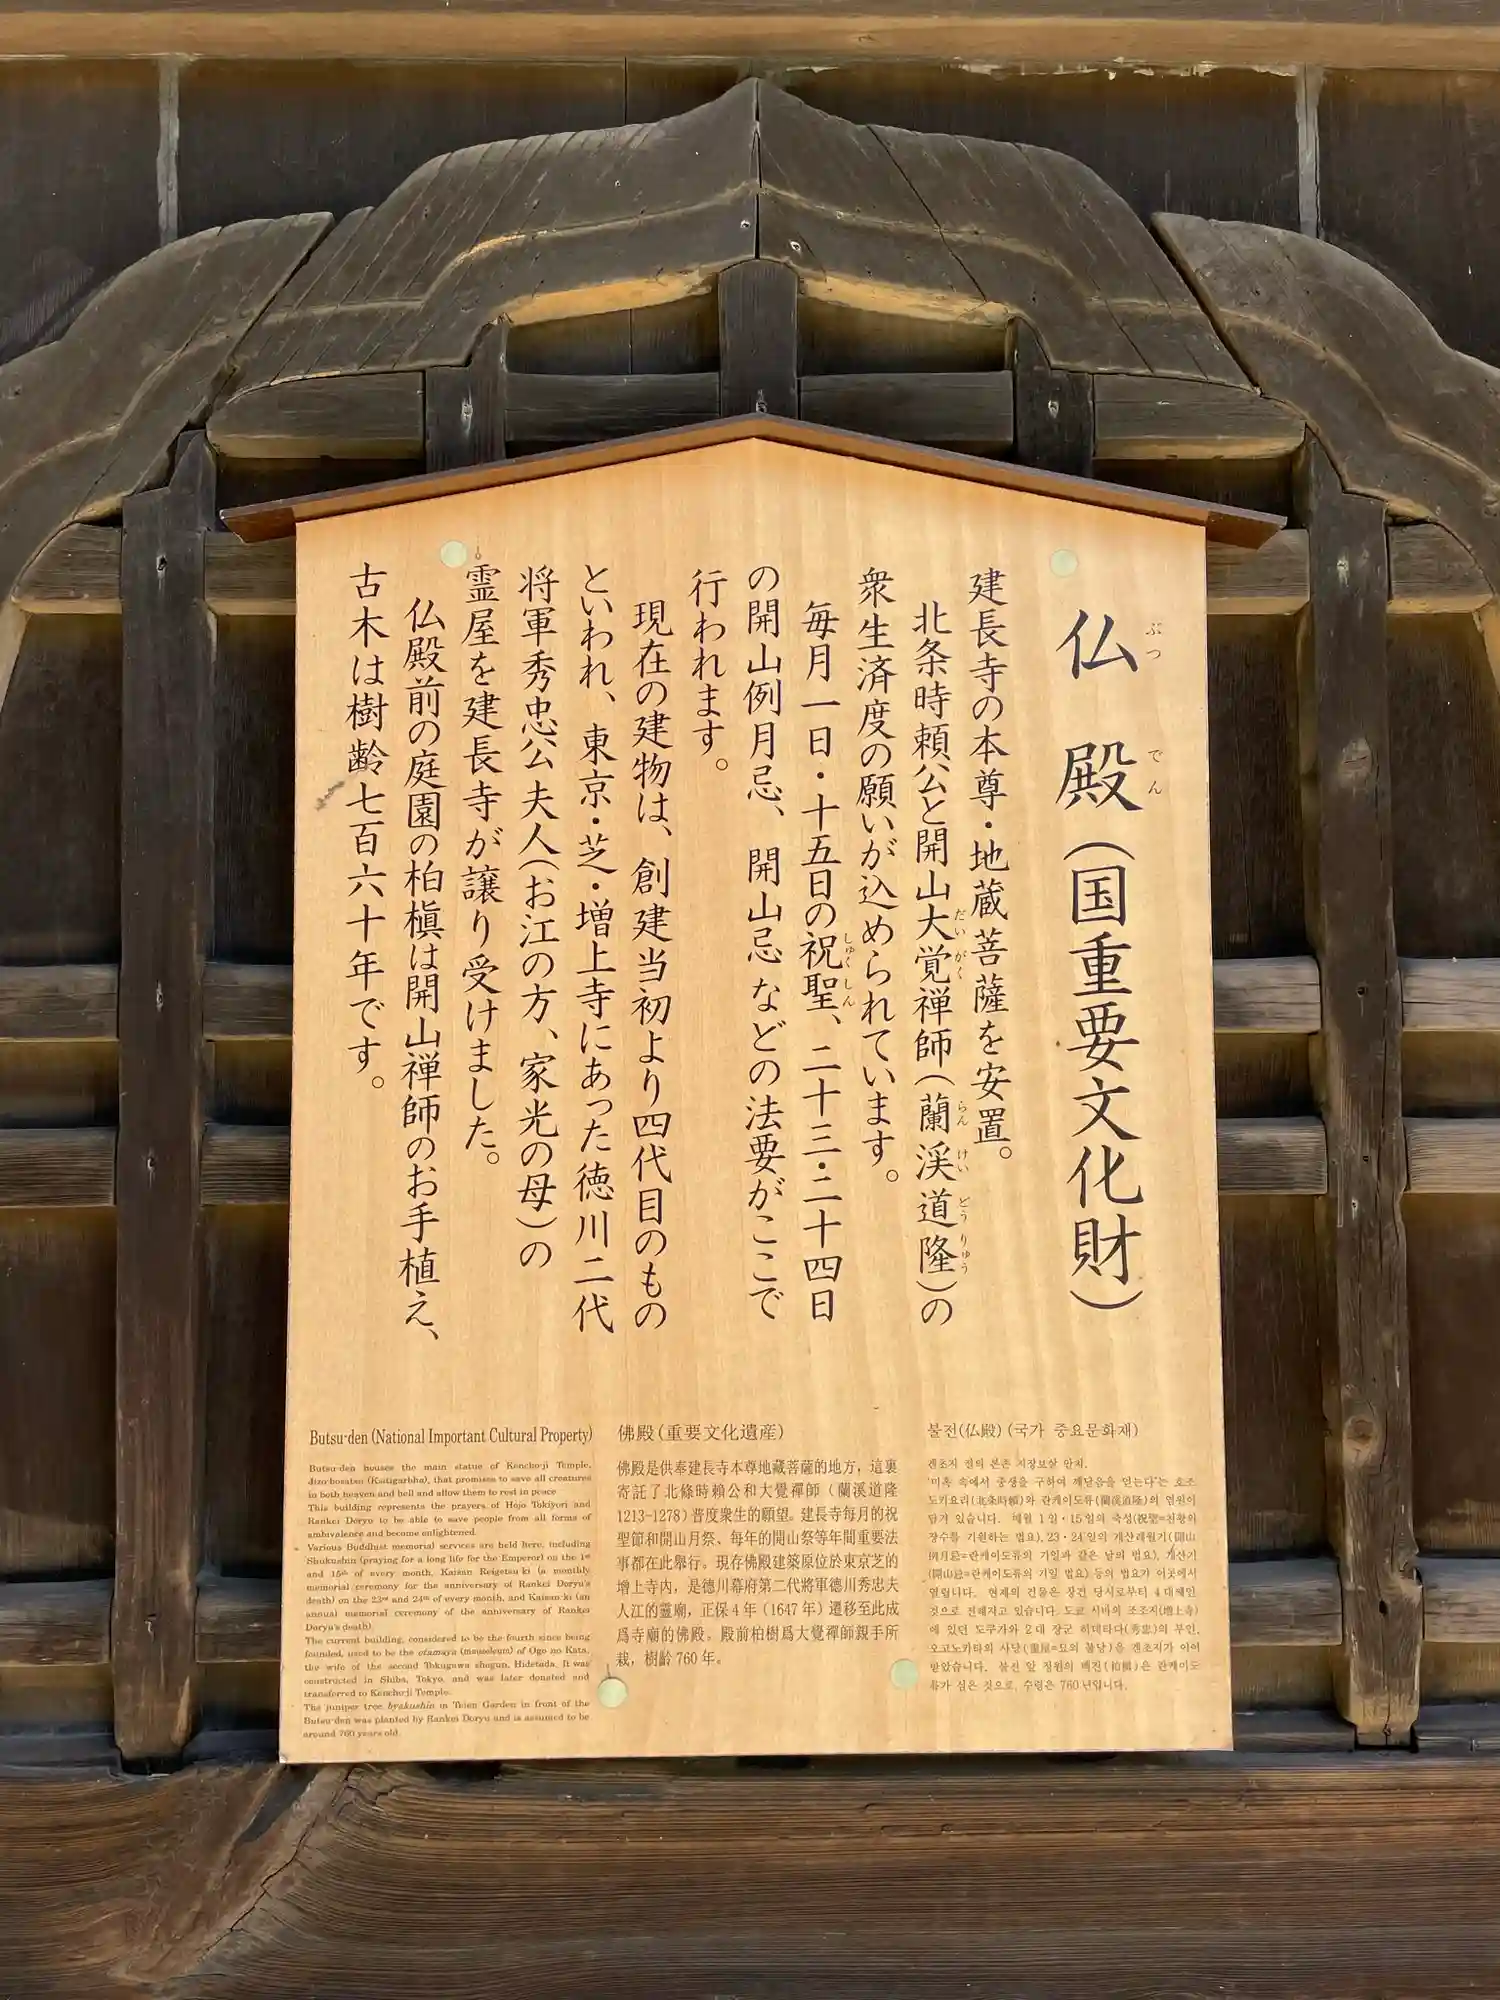 仏殿（国重要文化財）
建長寺の本尊・地蔵菩薩を安置。
北条時頼公と開山大覚禅師（蘭渓道隆）の
衆生済度の願いが込められています。
毎月一日・十五日の祝聖、二十三・二十四日
の開山例月忌、開山忌などの法要がここで
行われます。
現在の建物は、創建当初より四代目のもの
といわれ、東京・芝・増上寺にあった徳川二代
将軍秀忠公夫人（お江の方、家光の母）の
霊屋を建長寺が譲り受けました。
仏殿前の庭園の柏槇は開山禅師のお手植え、
古木は樹齢七百六十年です。
Butsu-den (National Important Cultural Property)
Butsu-den houses the main statue of Kencho-ji Temple,
Jizo-bosatsu (Ksitigarbha), that promises to save all creatures
in both heaven and hell and allow them to rest in peace.
This building represents the prayers of Hojo Tokiyori and
Rankei Doryu to be able to save people from all forms of
ambivalence and become enlightened.
Various Buddhist memorial services are held here, including
Shukushin (praying for a long life for the Emperor) on the 1st
and 15th of every month, Kaisan Reigetsu-ki (a monthly
memorial ceremony for the anniversary of Rankei Doryu's
death) on the 23rd and 24th of every month, and Kaisan-ki (an
annual memorial ceremony of the anniversary of Rankei
Doryu's death).
The current building, considered to be the fourth since being
founded, used to be the otamaya (mausoleum) of Ogo no Kata,
the wife of the second Tokugawa shogun, Hidetada. It was
constructed in Shiba, Tokyo, and was later donated and
transferred to Kencho-ji Temple.
The juniper tree byakushin in Teien Garden in front of the
Butsu-den was planted by Rankei Doryu and is assumed to be
around 760 years old.
佛殿（重要文化遺産）
佛殿是供奉建長寺本尊地藏菩薩的地方，這裏
寄託了北條時賴公和大覺禪師（蘭溪道隆
1213-1278）普度衆生的願望。建長寺每月的祝
聖節和開山月祭、每年的開山祭等年間重要法
事都在此舉行。現存佛殿建築原位於東京芝的
增上寺內，是德川幕府第二代將軍德川秀忠夫
人江的靈廟，正保4年（1647年）遷移至此成
爲寺廟的佛殿。殿前柏樹爲大覺禪師親手所
栽，樹齡760年。
불전(仏殿) (국가 중요문화재)
겐초지 절의 본존 지장보살 안치.
'미혹 속에서 중생을 구하여 깨달음을 얻는다'는 호조
도키요리(北条時頼)와 란케이도류(蘭渓道隆)의 염원이
담겨 있습니다. 매월 1일・15일의 축성(祝聖=천황의
장수를 기원하는 법요), 23・24일의 개산례월기(開山
例月忌=란케이도류의 기일과 같은 날의 법요), 개산기
(開山忌=란케이도류의 기일 법요) 등의 법요가 이곳에서
열립니다. 현재의 건물은 창건 당시로부터 4대째인
것으로 전해지고 있습니다. 도쿄 시바의 조조지(増上寺)
에 있던 도쿠가와 2대 장군 히데타다(秀忠)의 부인,
오고노카타의 사당(霊屋=묘의 불당)을 겐초지가 이어
받았습니다. 불전 앞 정원의 백진(柏槇)은 란케이도
류가 심은 것으로, 수령은 760년입니다.